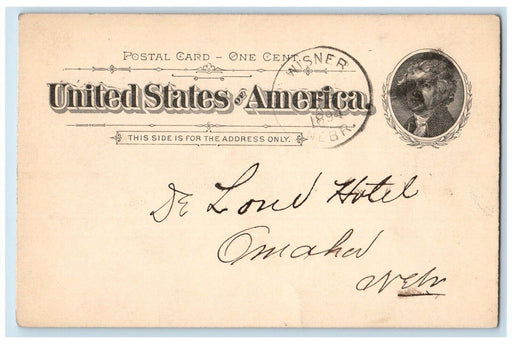 POSTAL CARD - ONE CENT.
United States of America.
THIS SIDE IS FOR THE ADDRESS ONLY.
WISNER
1894
NEBR.
De Lone Hotel
Omaha
Nebr